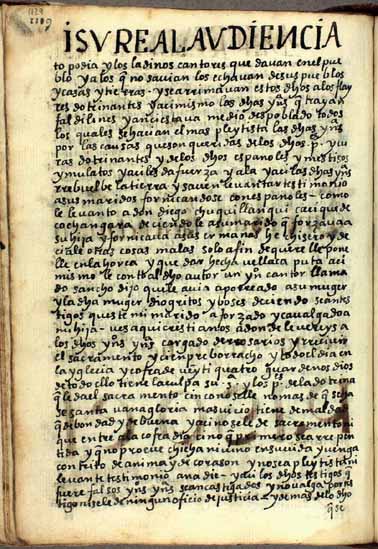 1129
1119
ISV REAL AVDIENCIA
to podia y los ladinos cantores que davan en el pue
blo y a los q̃ no savian los echavan de sus pueblos
y casas y tierras - y se arrimavan estos dhos a los flay
res dotrinantes y acimismo las dhas yns q̃ trayan
faldilines y anci estava medio despoblado todos
los quales se hacian el mas pleytista las dhas yns
por las causas que son queridas de los dhos p. y cu
ras dotrinantes y de los dhos españoles y mestisos
y mulatos y a ci le da fuerza y ala y aci las dhas yns
rrebuelbe la tierra y saven levantar testimonio
a sus maridos fornicandose con españoles - como
le levanto a don diego chuquillanqui cacique de
cochangara deciendole afirmando q̃ forzava a
su hija y fornicava a las ermanas hechisero y de
cialle otras cosas malas solo a fin de querelle pone
lle en la horca y que dar hecha vellaca puta aci
mismo le conto al dho autor un yn cantor llama
do sancho dijo que le avia aporreado a su muger
y la dha muger dio gritos y boses deciendo seanme
tigos que este mi marido a forzado y cavalgado a
mi hija - ves aqui cristianos adonde le vereys a
los dhos yns yns cargado de rrosarios y rreciuen
el sacramento y cienpre borracho y todo el dia en
la yglecia y cofrade veynti quatro guardenos dios
de todo ello tiene la culpa su s. y los p. de la dotrina
q̃ le da el sacramento cin conoselle nomas de q̃ se ha
se santa vanagloria mas vicio tiene de maldad
q̃ de bondad y es buena y a ci no se le de sacramento ni
que entre a la cofradia cino que primero se arrepien
tida y q̃ no proeve chicha ni vino en su vida y venga
contrito de anima y de corason y no sea pleytista ni
levante testimonio a nadie - y a ci los dhos testigos q̃
fuere falsos yns yns sean castigados y no valga por tes
tigo ni se le de ningun oficio de justicia y demas de lo dho
q̃ se